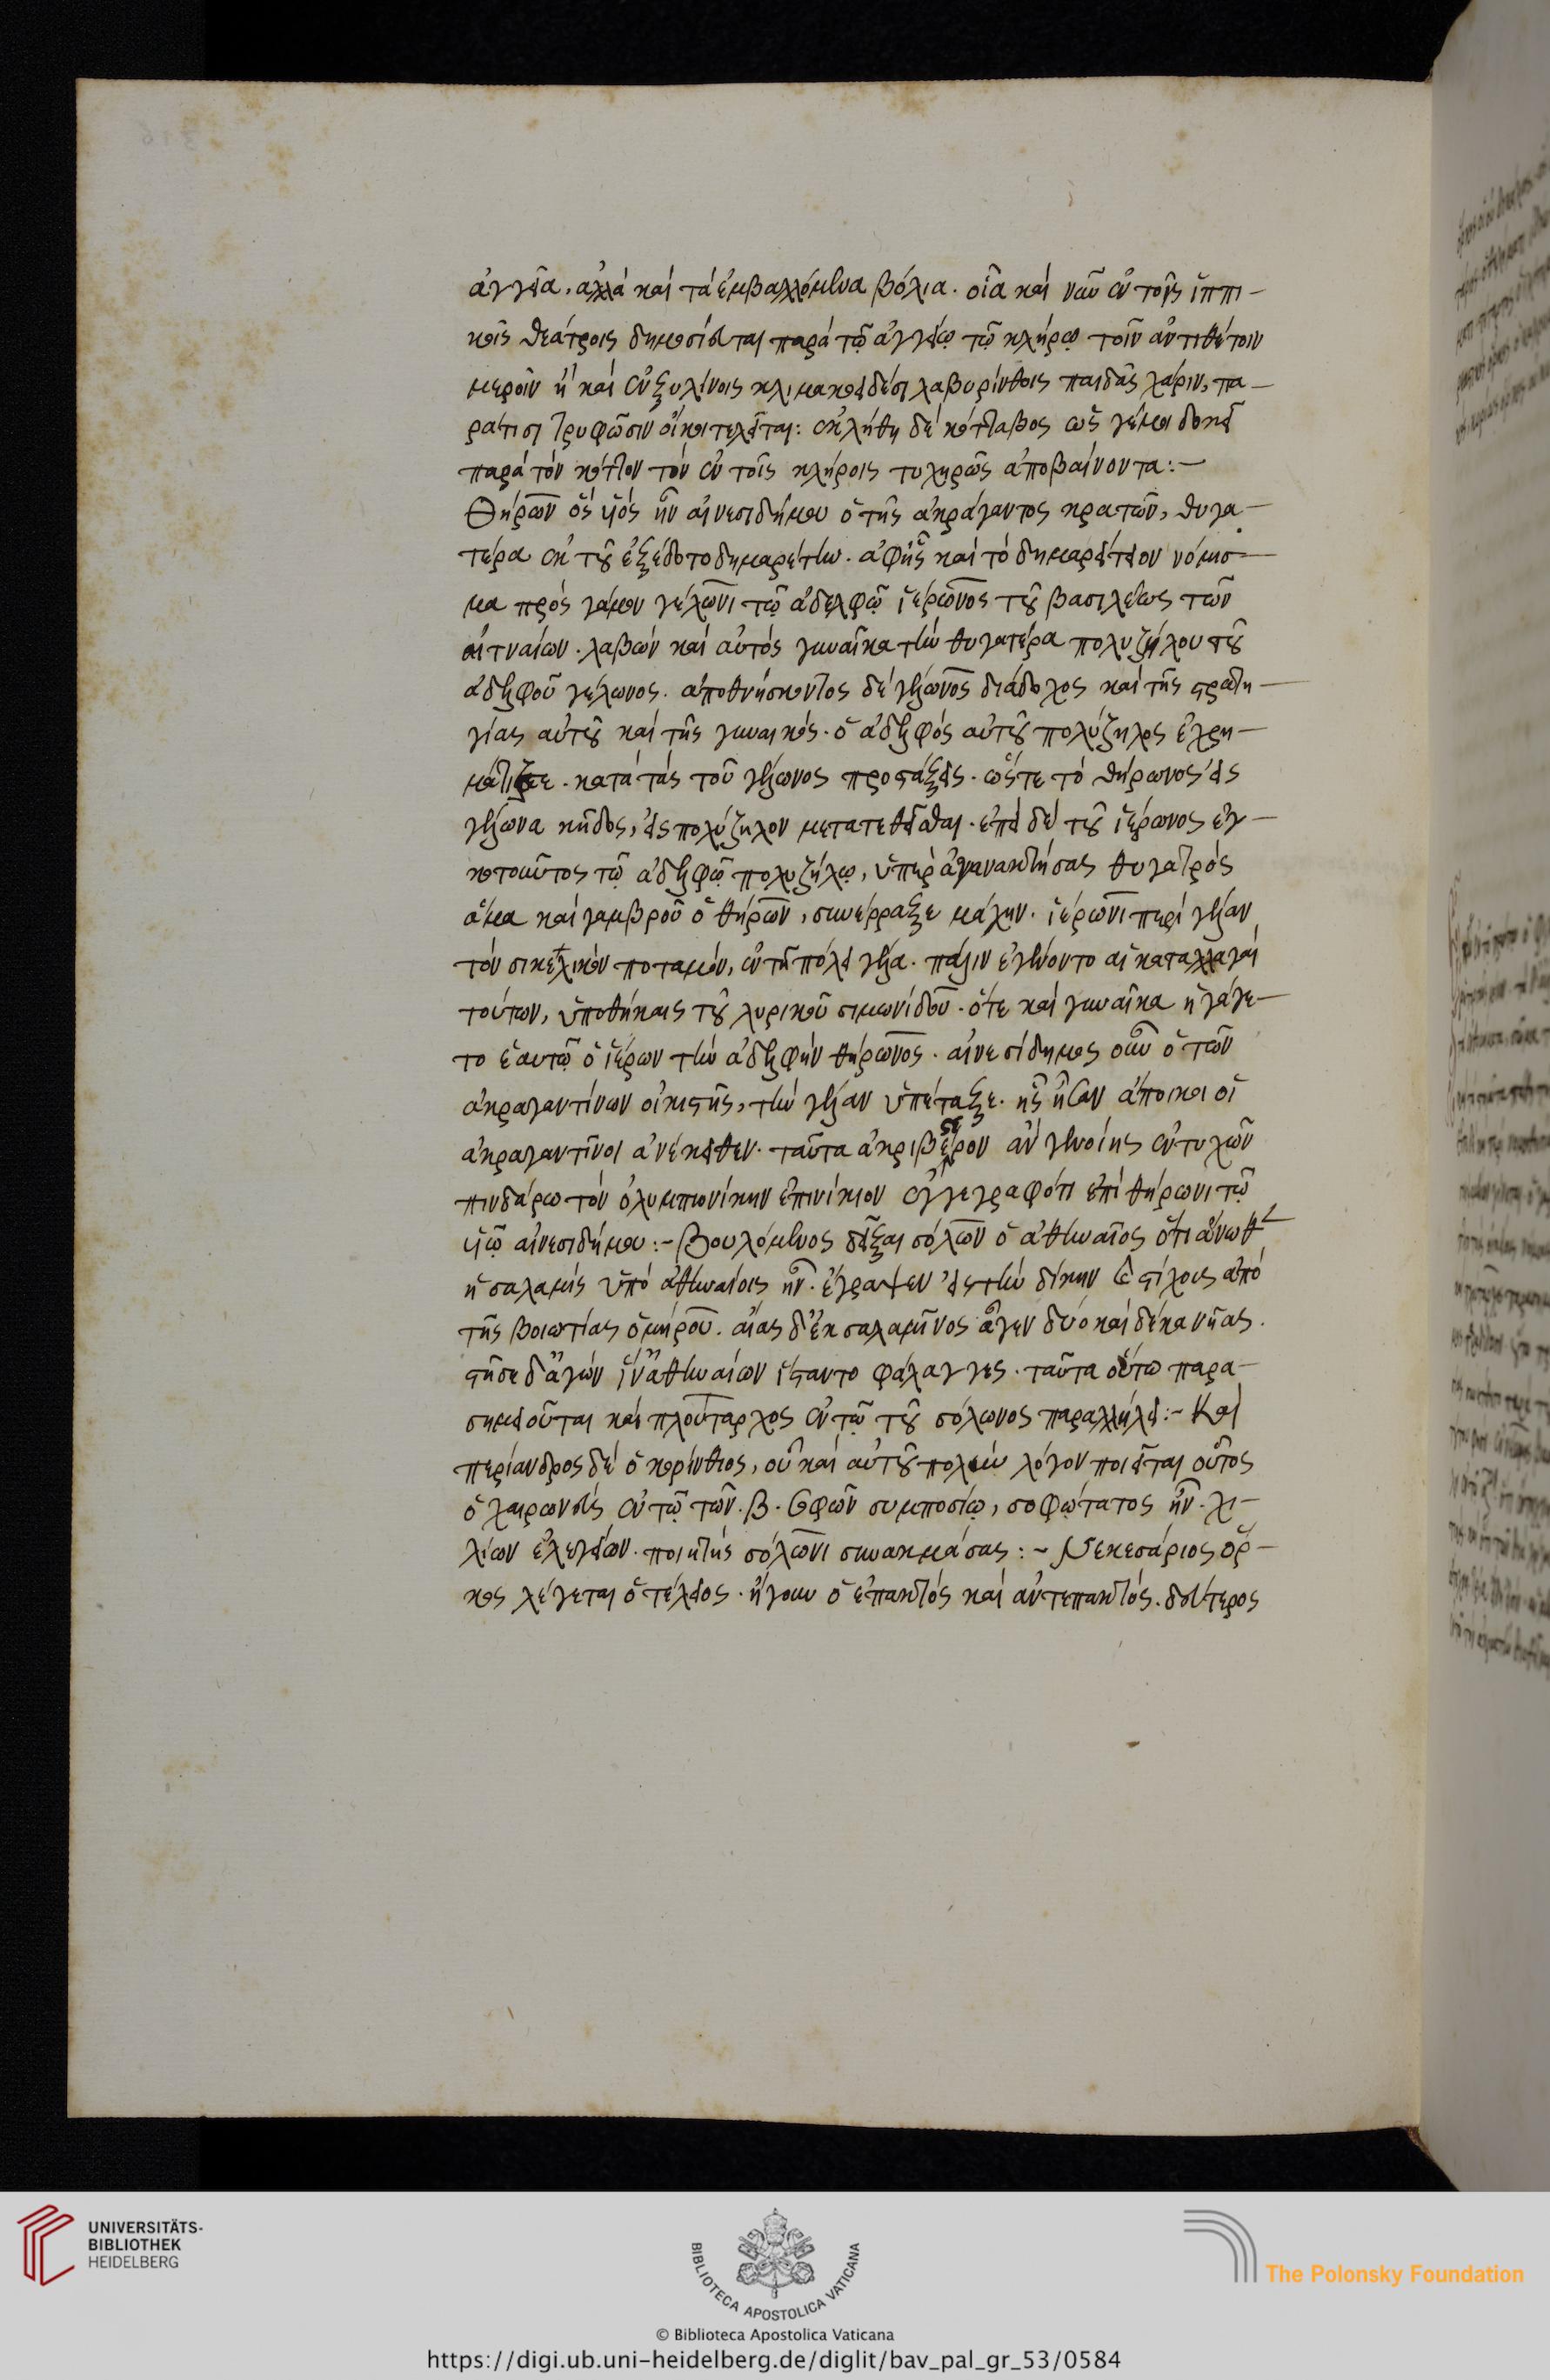 ἀγγεῖα, ἀλλὰ καὶ τὰ ἐμβαλλόμενα βόλια. οἷα καὶ νῦν ἐν τοῖς ἱππι-
κοῖς θεάτροις δημοσιεύεται παρὰ τῷ ἀγγείῳ τῷ κλήρῳ τοῖν ἀντιθέτοιν
μεροῖν ἢ καὶ ἐν ξυλίνοις κλιμακοειδέσι λαβυρίνθοις παιδιᾶς χάριν, πα-
ρά τισι τρυφῶσιν οἴκοι τελεῖται: ἐκλήθη δὲ κότταβος ὡς γ' ἐμοὶ δοκεῖ
παρὰ τὸν κόττον τὸν ἐν τοῖς κλήροις τυχηρῶς ἀποβαίνοντα:-
Θήρων ὃς υἱὸς ἦν αἰνεσιδήμου ὁ τῆς ἀκράγαντος κρατῶν, θυγα-
τέρα ἐκ τοῦ ἐξέδοτο δημαρέτην. ἀφ' ἧς καὶ τὸ δημαρέτειον νόμισ-
μα πρὸς γάμον γέλωνι τῷ ἀδελφῷ ἱέρωνος τοῦ βασιλέως τῶν
αἰτναίων. λαβὼν καὶ αὐτὸς γυναῖκα τὴν θυγατέρα πολυζήλου τοῦ
ἀδελφοῦ γέλωνος. ἀποθνήσκοντος δὲ γέλωνος διάδοχος καὶ τῆς στρατη-
γίας αὐτοῦ καὶ τῆς γυναικός. ὁ ἀδελφὸς αὐτοῦ πολύζηλος ἐχρη-
μάτιζε. κατὰ τὰς τοῦ γέλωνος προστάξεις. ὥστε τὸ θήρωνος εἰς
γέλωνα κῆδος, εἰς πολύζηλον μετατεθεῖσθαι. ἐπεὶ δὲ τοῦ ἱέρωνος ἐγ-
κοτοῦντος τῷ ἀδελφῷ πολυζήλῳ, ὑπεραγανακτήσας θυγατρὸς
ἅμα καὶ γαμβροῦ ὁ θήρων, συνέρραξε μάχην. ἱέρωνι περὶ γέλαν
τὸν σικελικὸν ποταμόν, ἐν τῇ πόλει γέλα. πάλιν ἐγένοντο αἱ καταλλαγαὶ
τούτων, ὑποθήκαις τοῦ λυρικοῦ σιμωνίδου. ὅτε καὶ γυναῖκα ἠγάγε-
το ἑαυτῷ ὁ ἱέρων τὴν ἀδελφὴν θήρωνος. αἰνεσίδημος οὖν ὁ τῶν
ἀκραγαντίνων οἰκιστής, τὴν γέλαν ὑπέταξε. ἧς ἦσαν ἄποικοι οἱ
ἀκραγαντῖνοι ἀνέκαθεν. ταῦτα ἀκριβέστερον ἂν γενοίης ἐντυχὼν
πινδάρω τὸν ὀλυμπιονίκην ἐπινίκιον ἐγγεγραφότι ἐπὶ θήρωνι τῷ
υἱῷ αἰνεσιδήμου:- Βουλόμενος δεῖξαι σόλων ὁ ἀθηναῖος ὅτι ἄνωθεν
ἡ σαλαμὶς ὑπὸ ἀθηναίοις ἦν. ἔγραψεν εἰς τὴν δίκην ἐν στίχοις ἀπὸ
τῆς βοιωτίας ὁμήρου. αἴας δ' ἐκ σαλαμῖνος ἄγεν δύο καὶ δέκα νῆας.
στῆσε δ' ἄγων ἵν' ἀθηναίων ἵσταντο φάλαγγες. ταῦτα οὕτω παρα-
σημειοῦται καὶ πλούταρχος ἐν τῷ τοῦ σόλωνος παραλλήλῳ:- Καὶ
περίανδρος δὲ ὁ κορίνθιος, οὗ καὶ αὐτοῦ πολὺν λόγον ποιεῖται οὗτος
ὁ χαιρωνεὺς ἐν τῷ τῶν .β. σοφῶν συμποσίῳ, σοφώτατος ἦν. χι-
λίων ἐλεγείων. ποιητὴς σόλωνι συνακμάσας:- Νεκεσάριος ὅρ-
κος λέγεται ὁ τέλειος. ἤγουν ὁ ἐπακτὸς καὶ ἀντεπακτός. δεύτερος
UNIVERSITÄTS-
BIBLIOTHEK
HEIDELBERG
BIBLIOTECA APOSTOLICA VATICANA
The Polonsky Foundation
© Biblioteca Apostolica Vaticana
https://digi.ub.uni-heidelberg.de/diglit/bav_pal_gr_53/0584